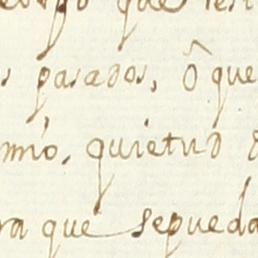 que
s pasados, Ô que
mio, quietud
ra que sepueda